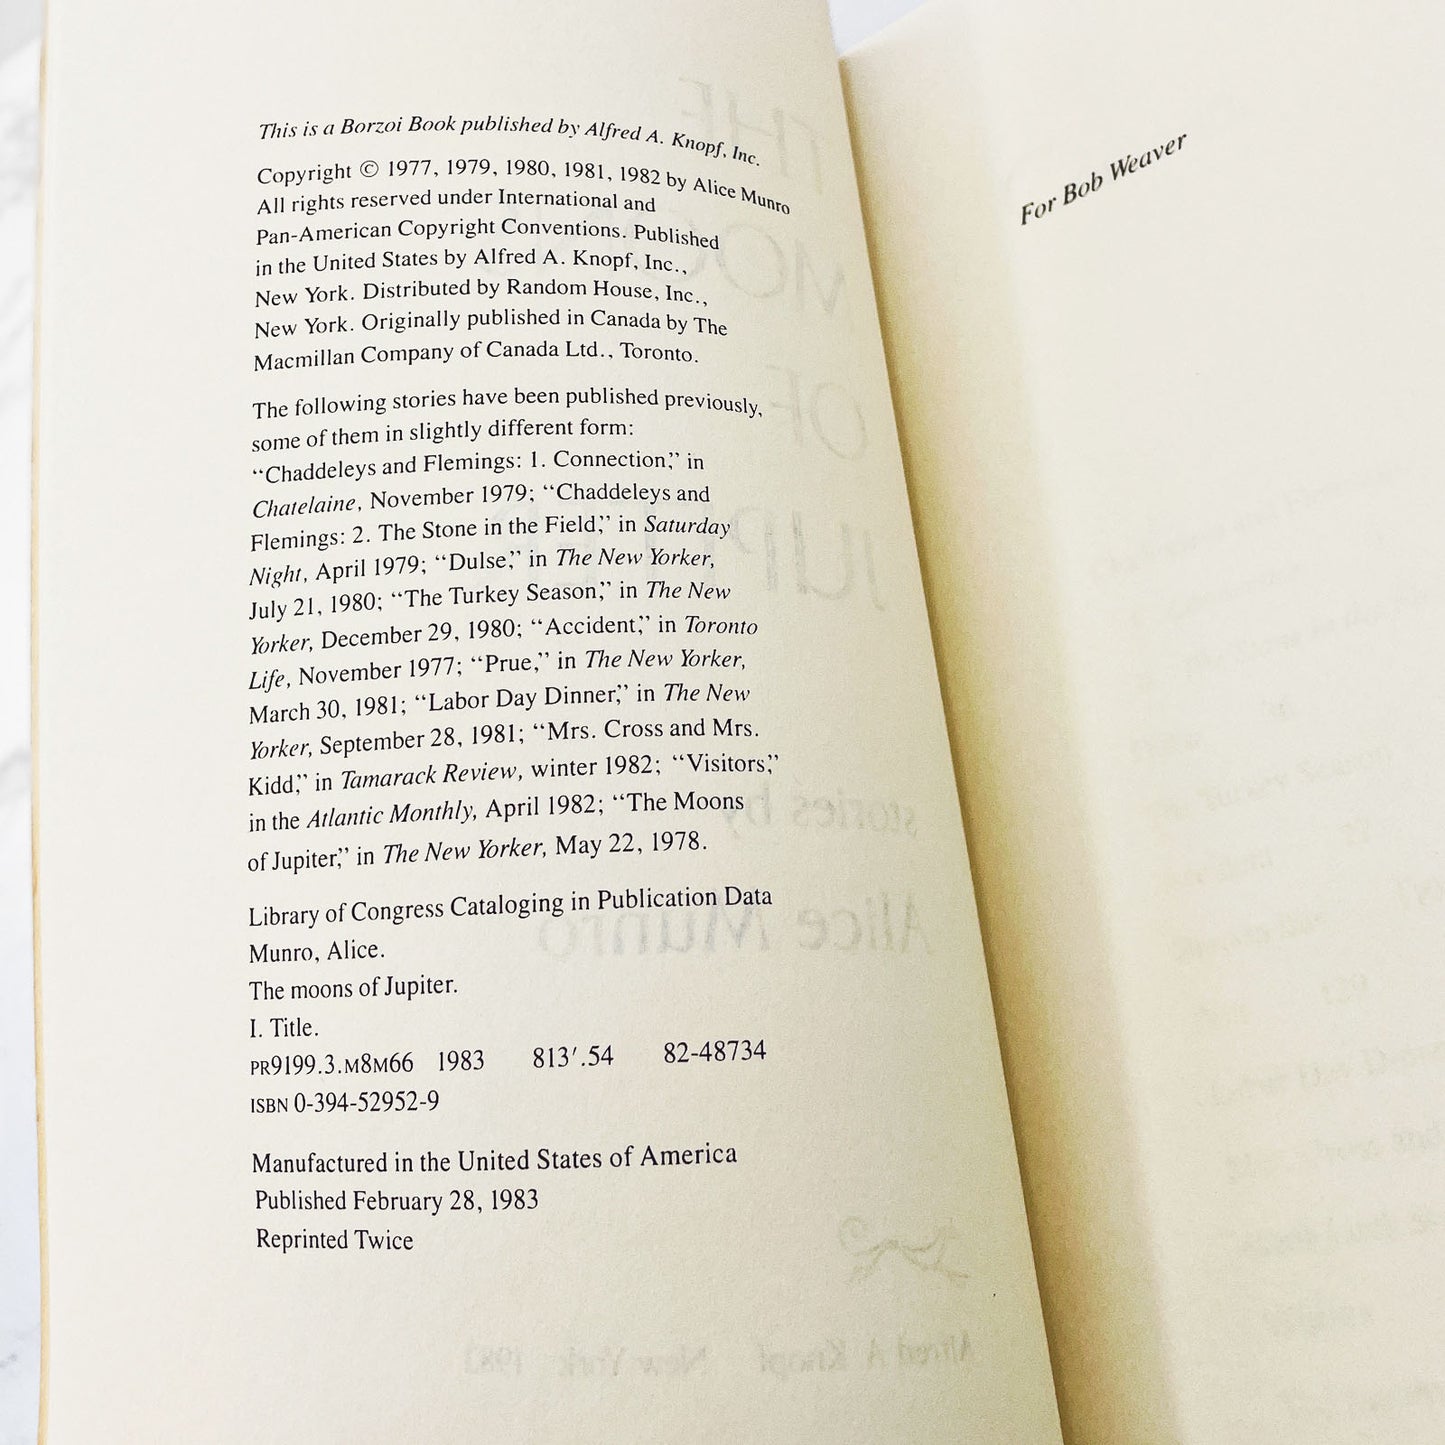 This is a Borzoi Book published by Alfred A. Knopf, Inc.
Copyright © 1977, 1979, 1980, 1981, 1982 by Alice Munro
All rights reserved under International and
Pan-American Copyright Conventions. Published
in the United States by Alfred A. Knopf, Inc.,
New York. Distributed by Random House, Inc.,
New York. Originally published in Canada by The
Macmillan Company of Canada Ltd., Toronto.
The following stories have been published previously,
some of them in slightly different form:
“Chaddeleys and Flemings: 1. Connection,” in
Chatelaine, November 1979; “Chaddeleys and
Flemings: 2. The Stone in the Field,” in Saturday
Night, April 1979; “Dulse,” in The New Yorker,
July 21, 1980; “The Turkey Season,” in The New
Yorker, December 29, 1980; “Accident,” in Toronto
Life, November 1977; “Prue,” in The New Yorker,
March 30, 1981; “Labor Day Dinner,” in The New
Yorker, September 28, 1981; “Mrs. Cross and Mrs.
Kidd,” in Tamarack Review, winter 1982; “Visitors,”
in the Atlantic Monthly, April 1982; “The Moons
of Jupiter,” in The New Yorker, May 22, 1978.
Library of Congress Cataloging in Publication Data
Munro, Alice.
The moons of Jupiter.
I. Title.
PR9199.3.M8M66 1983 813′.54 82-48734
ISBN 0-394-52952-9
Manufactured in the United States of America
Published February 28, 1983
Reprinted Twice
For Bob Weaver
THE
MOONS
OF
JUPITER
stories by
Alice Munro
Alfred A. Knopf New York 1983